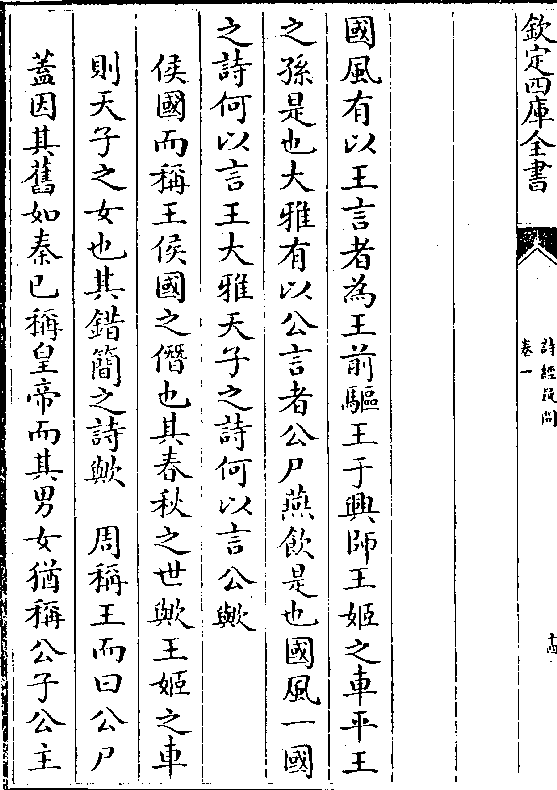 欽定四庫全書
詩經疑問
卷一
十四
國風有以王言者為王前驅王于興師王姬之車平王
之孫是也大雅有以公言者公尸燕飲是也國風一國
之詩何以言王大雅天子之詩何以言公歟
侯國而稱王侯國之僭也其春秋之世歟王姬之車
則天子之女也其錯簡之詩歟　周稱王而曰公尸
蓋因其舊如秦已稱皇帝而其男女猶稱公子公主